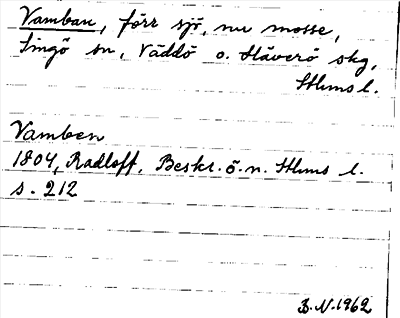 Vamban, förr sjö, nu mosse,
Singö sn, Väddö o. Häverö skg,
Sthms l.
Vamben
1804, Radloff, Beskr. ö. n. Sthms l.
s. 212
B.N. 1962